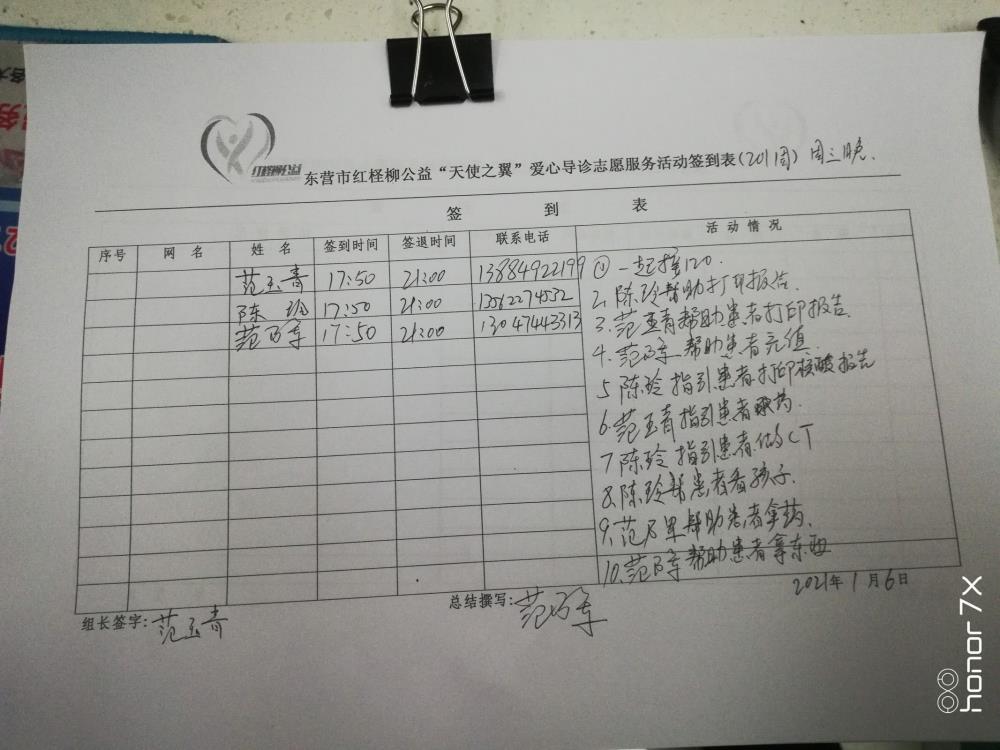 红柽柳公益
东营市红柽柳公益“天使之翼”爱心导诊志愿服务活动签到表(201周) 周三晚.
签 到 表
序号 网 名 姓 名 签到时间 签退时间 联系电话 活 动 情 况
范玉青 17:50 21:00 13884922199
陈玲 17:50 21:00 13562274532
范 军 17:50 21:00 13047443313
① 一起接120.
2. 陈玲帮助打印报告.
3. 范玉青帮助患者打印报告
4. 范 军帮助患者充值.
5 陈玲指引患者打印核酸报告
6. 范玉青指引患者取药.
7 陈玲指引患者做CT
8. 陈玲帮患者看孩子.
9. 范 军帮助患者拿药.
10. 范 军帮助患者拿东西
2021年1月6日
组长签字: 范玉青
总结撰写: 范 军
honor 7X